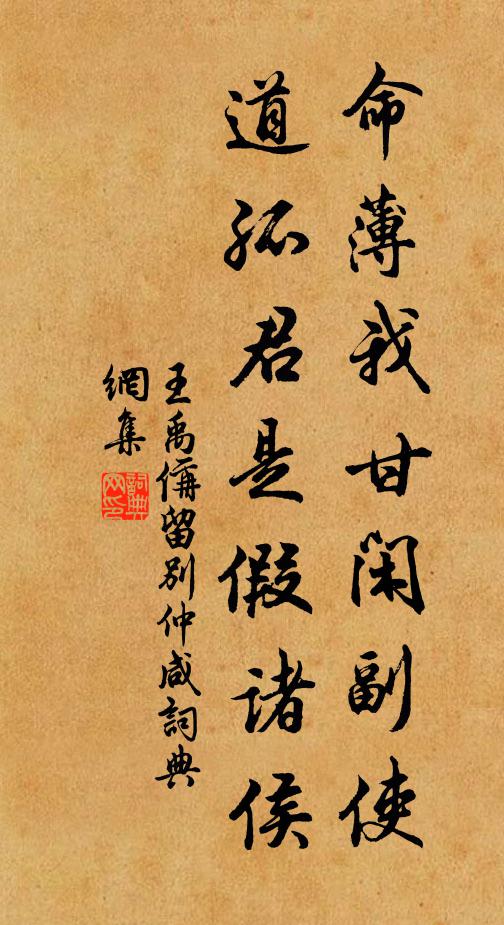 命薄我甘閑副使
道孤君是假诸侯
王禹偁留别仲咸詞典
網集
詞典
网印